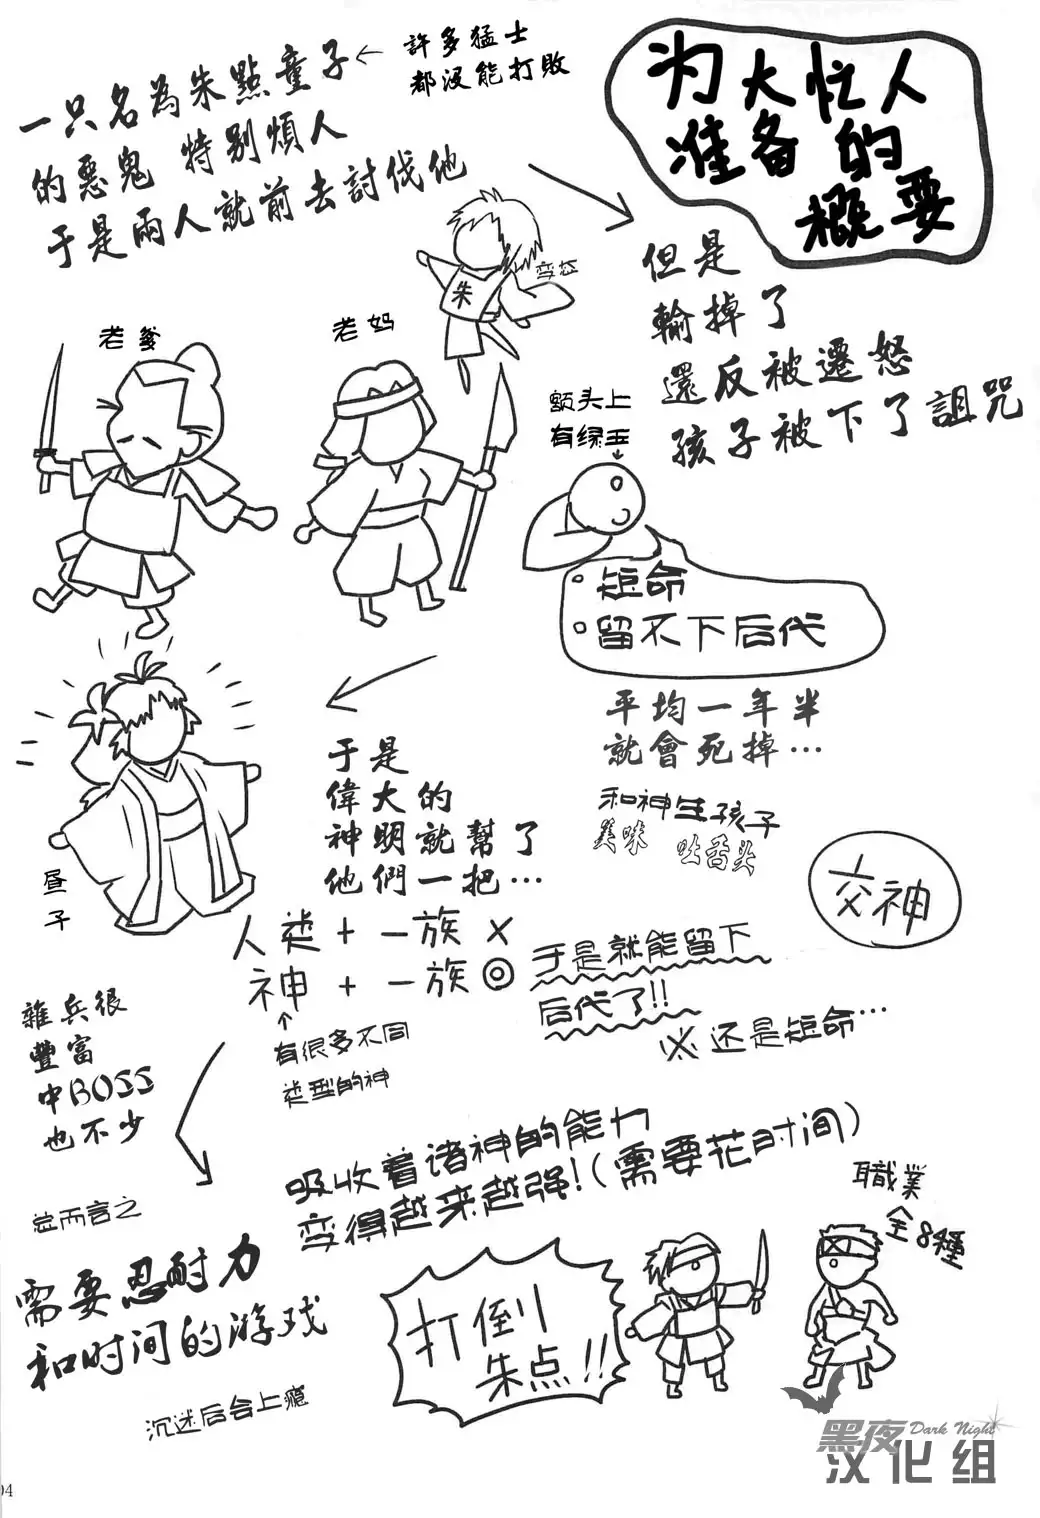 为大忙人
准备的
概要
許多猛士
都沒能打敗
一只名為朱點童子
的惡鬼 特別煩人
于是兩人就前去討伐他
朱
但是
輸掉了
還反被遷怒
孩子被下了詛咒
老爹
老妈
额头上
有绿玉
短命
留不下后代
平均一年半
就會死掉…
和神生孩子
美味 吐舌头
交神
于是
偉大的
神明就幫了
他們一把…
昼子
人类+一族×
神+一族◎
有很多不同
类型的神
于是就能留下
后代了!!
※还是短命…
雜兵很
豐富
中BOSS
也不少
吸收着诸神的能力
变得越来越强!(需要花时间)
職業
全8種
总而言之
需要忍耐力
和时间的游戏
沉迷后会上瘾
打倒
朱点!!
黑夜 Dark Night
汉化组
04